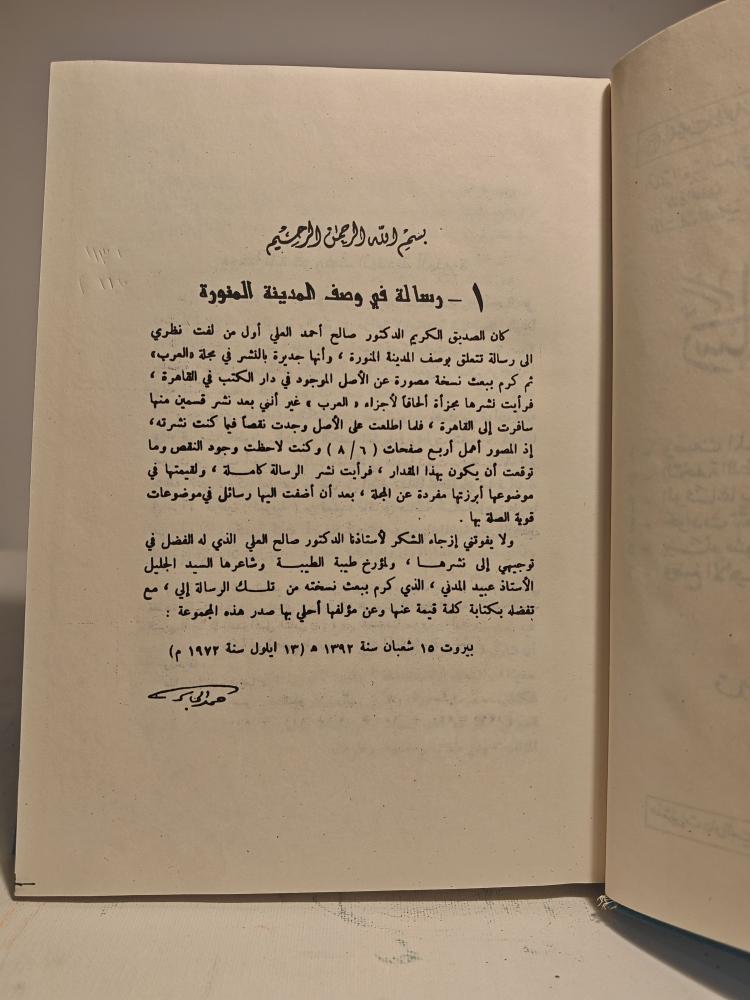 بسم الله الرحمن الرحيم
١ – رسالة في وصف المدينة المنورة
كان الصديق الكريم الدكتور صالح أحمد العلي أول من لفت نظري
الى رسالة تتعلق بوصف المدينة المنورة ، وأنها جديرة بالنشر في مجلة «العرب»
ثم كرم ببعث نسخة مصورة عن الأصل الموجود في دار الكتب في القاهرة ،
فرأيت نشرها مجزأة ألحاقاً لأجزاء « العرب » غير أنني بعد نشر قسمين منها
سافرت إلى القاهرة ، فلما اطلعت على الأصل وجدت نقصاً فيما كنت نشرته،
إذ المصور أهمل أربع صفحات ( ٦ / ٨ ) وكنت لاحظت وجود النقص وما
توقعت أن يكون بهذا المقدار ، فرأيت نشر الرسالة كاملة ، ولقيمتها في
موضوعها أبرزتها مفردة عن المجلة ، بعد أن أضفت اليها رسائل في موضوعات
قوية الصلة بها .
ولا يفوتني إزجاء الشكر لأستاذنا الدكتور صالح العلي الذي له الفضل في
توجيهي إلى نشرها ، ولمؤرخ طيبة الطيبة وشاعرها السيد الجليل
الأستاذ عبيد المدني ، الذي كرم ببعث نسخته من تلك الرسالة إلي ، مع
تفضله بكتابة كلمة قيمة عنها وعن مؤلفها أحلي بها صدر هذه المجموعة :
بيروت ١٥ شعبان سنة ١٣٩٢ ه (١٣ ايلول سنة ١٩٧٢ م )
حمد الجاسر